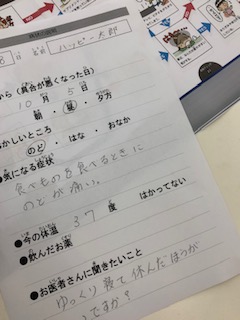 8日 名前 ハッピー太郎
から(具合が悪くなった日)
10月5日
朝・昼・夕方
かしいところ
のど・はな・おなか
●気になる症状
食べものを食べるときに
のどが痛い。
●今の体温 37度 はかってない
●飲んだお薬
●お医者さんに聞きたいこと
ゆっくり寝て休んだほうが
ですか?